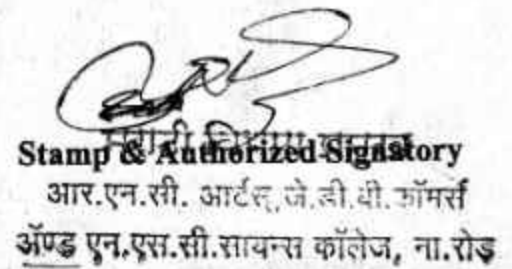 मराठी विभाग प्रमुख
Stamp & Authorized Signatory
आर.एन.सी. आर्टस्,जे.डी.बी.कॉमर्स
ॲण्ड एन.एस.सी.सायन्स कॉलेज, ना.रोड